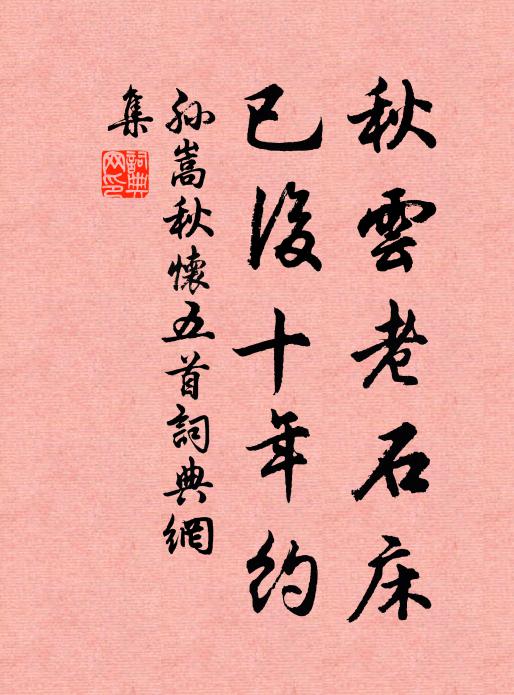 秋雲老石床
已後十年約
孫嵩秋懷五首詞典網
集
詞典
网印